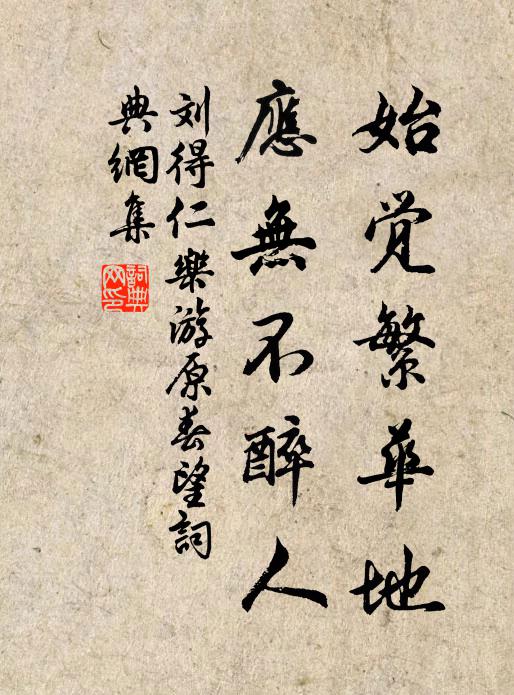 始觉繁華地
應無不醉人
刘得仁樂游原春望詞
典網集
詞典網印